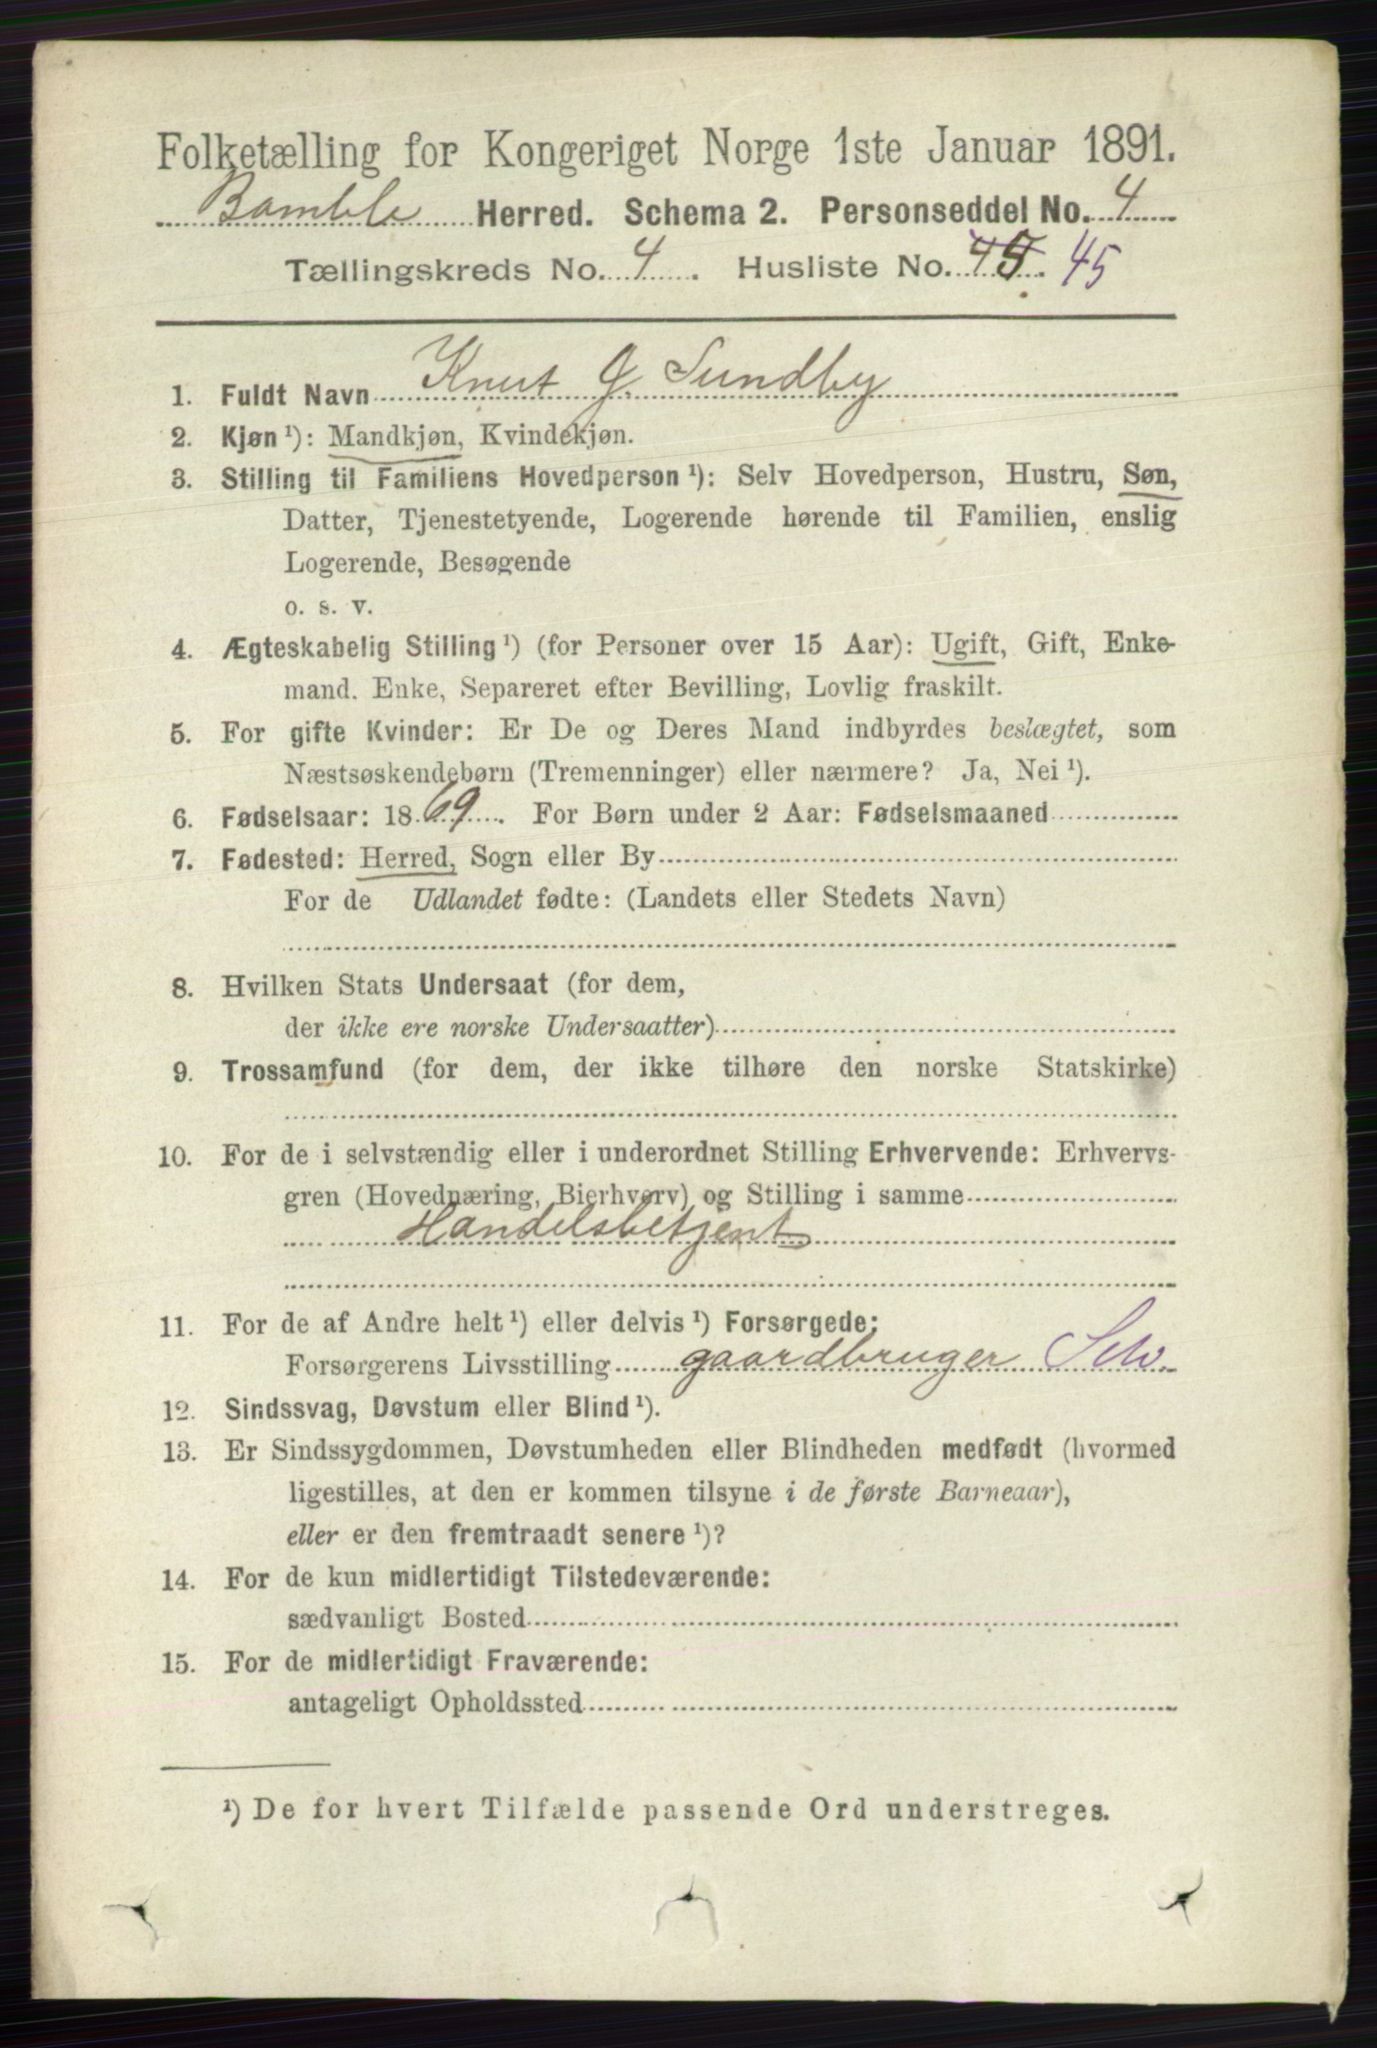 Folketælling for Kongeriget Norge 1ste Januar 1891.
Bamble Herred. Schema 2. Personseddel No. 4
Tællingskreds No. 4. Husliste No. 45. 45
1. Fuldt Navn Knut G. Sundby
2. Kjøn ¹): Mandkjøn, Kvindekjøn.
3. Stilling til Familiens Hovedperson ¹): Selv Hovedperson, Hustru, Søn,
Datter, Tjenestetyende, Logerende hørende til Familien, enslig
Logerende, Besøgende
o. s. v.
4. Ægteskabelig Stilling ¹) (for Personer over 15 Aar): Ugift, Gift, Enke-
mand. Enke, Separeret efter Bevilling, Lovlig fraskilt.
5. For gifte Kvinder: Er De og Deres Mand indbyrdes beslægtet, som
Næstsøskendebørn (Tremenninger) eller nærmere? Ja, Nei ¹).
6. Fødselsaar: 1869. For Børn under 2 Aar: Fødselsmaaned
7. Fødested: Herred, Sogn eller By
For de Udlandet fødte: (Landets eller Stedets Navn)
8. Hvilken Stats Undersaat (for dem,
der ikke ere norske Undersaatter)
9. Trossamfund (for dem, der ikke tilhøre den norske Statskirke)
10. For de i selvstændig eller i underordnet Stilling Erhvervende: Erhvervs-
gren (Hovednæring, Bierhverv) og Stilling i samme
Handelsbetjent
11. For de af Andre helt ¹) eller delvis ¹) Forsørgede:
Forsørgerens Livsstilling gaardbruger Selv.
12. Sindssvag, Døvstum eller Blind ¹).
13. Er Sindssygdommen, Døvstumheden eller Blindheden medfødt (hvormed
ligestilles, at den er kommen tilsyne i de første Barneaar),
eller er den fremtraadt senere ¹)?
14. For de kun midlertidigt Tilstedeværende:
sædvanligt Bosted
15. For de midlertidigt Fraværende:
antageligt Opholdssted
¹) De for hvert Tilfælde passende Ord understreges.